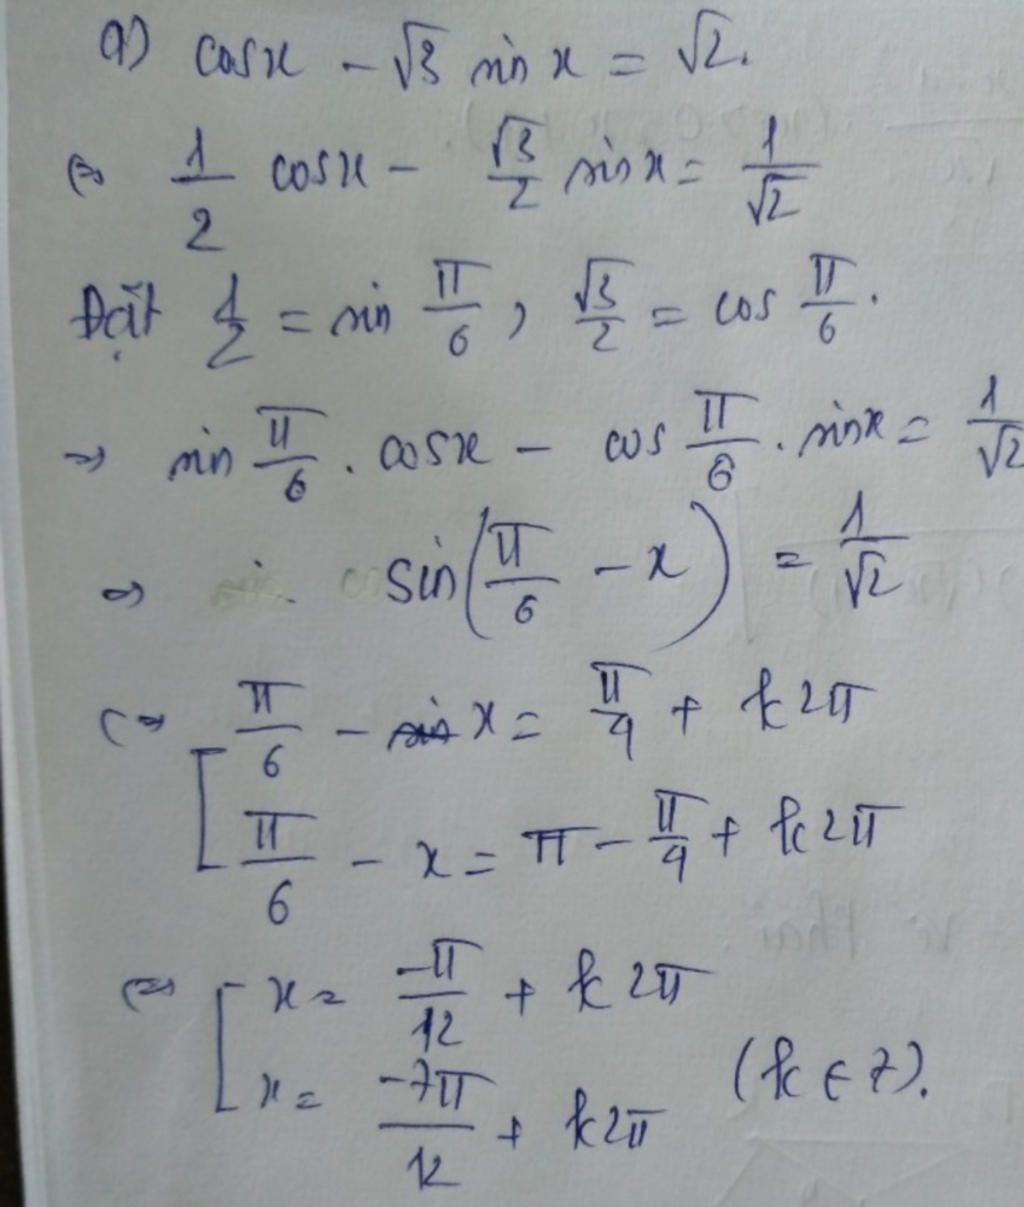 a) cosx - √3 sin x = √2.
⇔ 1/2 cosx - √3/2 sin x = 1/√2
Đặt 1/2 = sin π/6, √3/2 = cos π/6.
⇒ sin π/6 . cosx - cos π/6 . sinx = 1/√2
⇒ sin(π/6 - x) = 1/√2
⇔ [ π/6 - x = π/4 + k2π
π/6 - x = π - π/4 + k2π
⇔ [ x = -π/12 + k2π
x = -7π/12 + k2π (k ∈ Z).